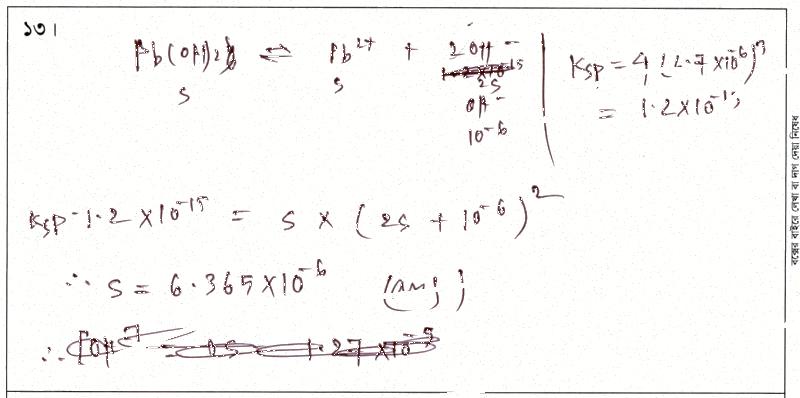 ১৩।
Pb(OH)2 ⇌ Pb2+ + 2OH-
S S 2S
OH-
10-6
Ksp = 4 (6.7×10-6)3
= 1.2×10-15
Ksp = 1.2 ×10-15 = S × (2S + 10-6)2
∴ S = 6.365×10-6 (Ans)
∴
বক্সের বাইরে লেখা বা দাগ দেয়া নিষেধ